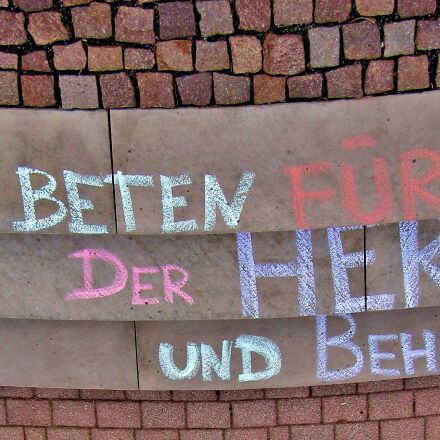 BETEN FÜR
DER HER
UND BEH